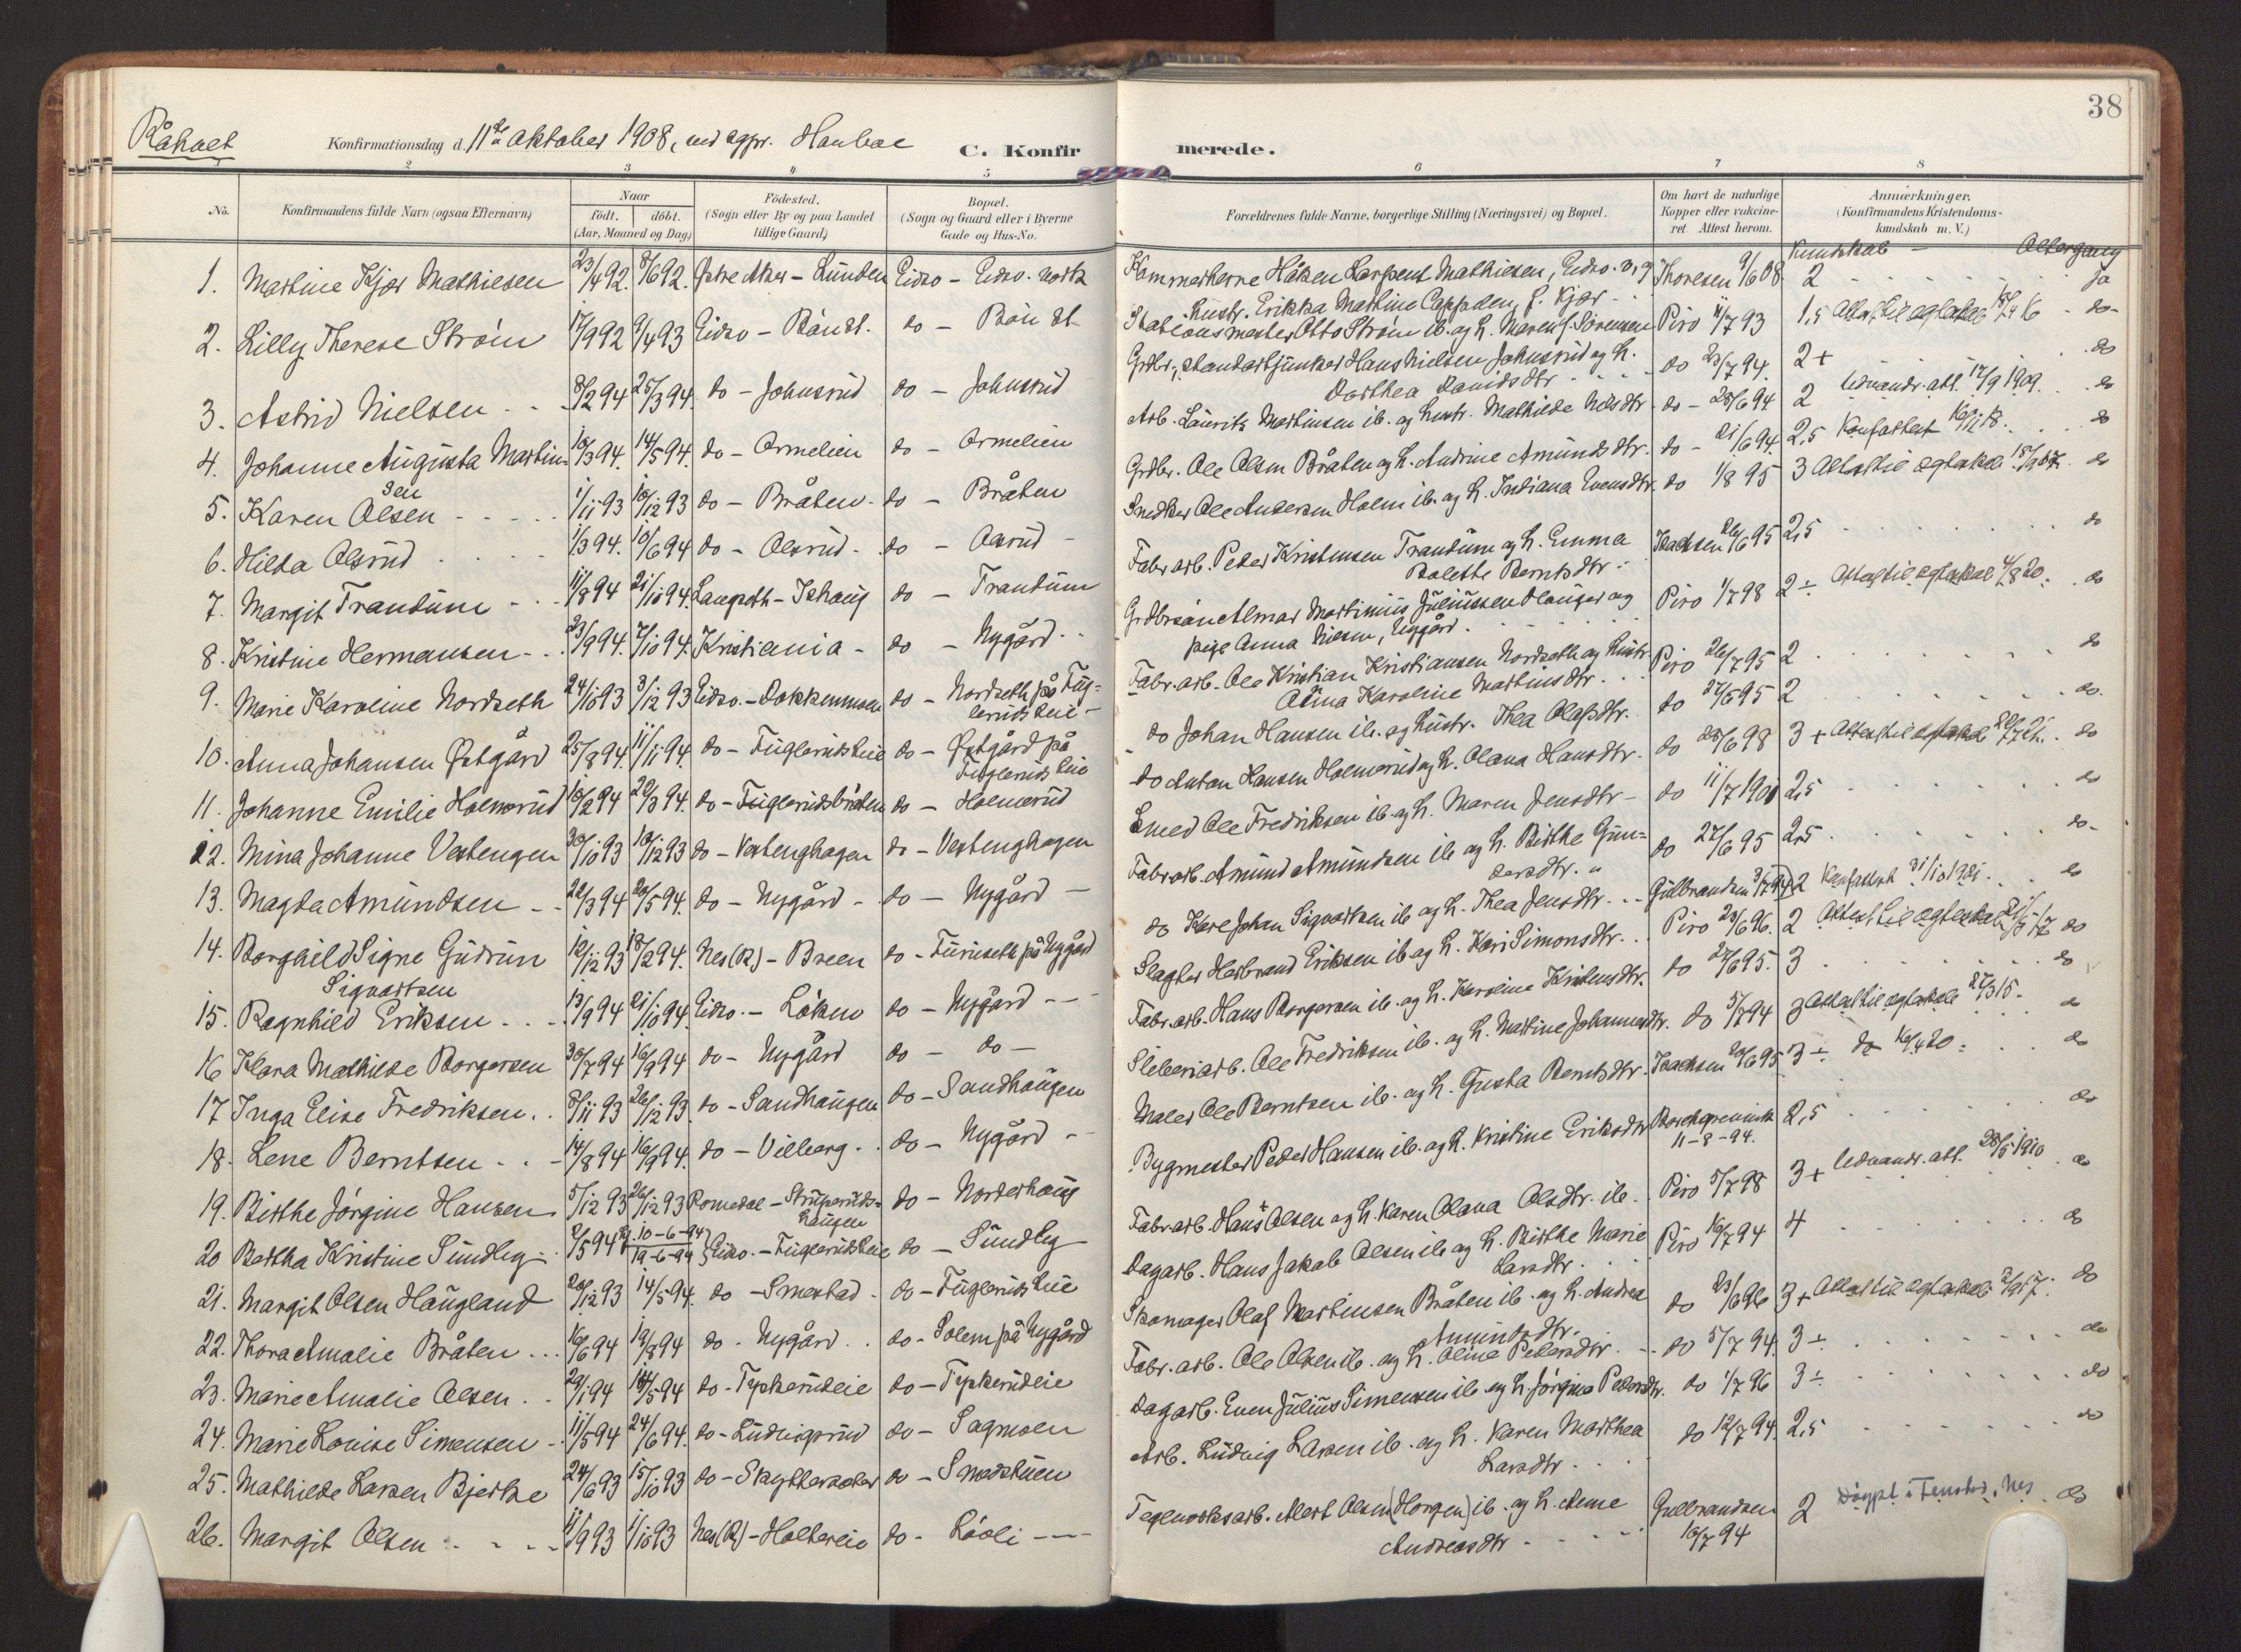 38
Råholt
Konfirmationsdag d. 11te Oktober 1908, ved sgpr.
C. Konfirmerede.
1 2 3 4 5 6 7 8
No.
Konfirmandens fulde Navn (ogsaa Efternavn)
Naar
födt. döbt.
(Aar, Maaned og Dag)
Födested.
(Sogn eller By og paa Landet
tillige Gaard)
Bopæl.
(Sogn og Gaard eller i Byerne
Gade og Hus-No.
Forældrenes fulde Navne, borgerlige Stilling (Næringsvei) og Bopæl.
Om havt de naturlige
Kopper eller vakcine-
ret Attest herom.
Anmærkninger.
(Konfirmandens Kristendoms-
kundskab m. V.)
Kundskab - Altergang
1. Martine Kjær Mathiesen 23/4 92. 8/6 92. Østre Aker - Linderud Eidsv - Eidsv. verk Kammerherre Haaken Mathiesen, Eidsv. v. og Thoresen 9/6 08 2 ja
hustr. Erikka Martine Cappelen, f. Kjær
2. Lilly Therese Strøm 17/9 92 9/4 93 Eidsv - Bøn st. do - Bøn st. Stationsmester Otto Strøm ib. og h. Maren f. Sørensen Piro 11/7 93 1,5 Attest til ægteskab do
3. Astrid Nielsen 8/2 94 25/3 94 do - Johnsrud do - Johnsrud Grdbr., standartjunker Hans Nielsen Johnsrud og h. do 23/7 94. 2+ do
Dorthea Davidsdtr
4. Johanne Augusta Martin= 10/3 94. 14/5 94. do - Ormelien do - Ormelien Arb. Laurits Martinsen ib. og hustr. Mathilde Nilsdtr do - 28/6 94 2 Udvandr. att. 17/9 1909. do
sen
5. Karen Olsen 1/11 93 10/12 93 do - Bråten do - Bråten Grdbr. Ole Olsen Bråten og h. Andrine Amundsdtr. do - 21/6 94. 2,5 Konfattest do
6. Hilda Olsrud 1/3 94. 10/6 94 do - Olsrud do - Olsrud Snedker Ole Andersen Holm ib. og h. Indiana Evensdtr. do 1/8 95 3 Attest til ægteskab do
7. Margit Trandum 11/8 94 21/10 94. Langseth - Ishaug do - Trandum Fabr. arb. Peder Kristensen Trandum og h. Emma Isachsen 26/6 95 2,5 do
Bolette Berntsdtr.
8. Kristine Hermansen 23/9 94. 7/10 94. Kristiania do - Nygård Grdbrsøn Almar Martinius Juliussen og Piro 1/7 98 2÷ Attest til ægteskab 4/8 20. do
pige Anna Nilsen, Nygård.
9. Marie Karoline Nordseth 24/10 93 3/12 93 Eidsv. - Dokkenmoen do - Nordseth på Fug= Fabr. arb. Ole Kristian Kristiansen Nordseth og hustr. Piro 26/7 95 2 do
lerudseie Karoline Martinsdtr.
10. Anna Johansen Østgård 25/8 94. 11/11 94. do - Fuglerudseie do - Østgård på do Johan Hansen ib. og hustr. Thea Olafsdtr. do 27/6 95 2 do.
Fuglerudseie
11. Johanne Emilie Holmsrud 10/2 94 do - Fuglerudsbråten do - Holmsrud do Anton Hansen Holmsrud og h. Olava Hansdtr. do 28/6 98 3+ Attest til ægteskab do
12. Mina Johanne Vestengen 30/10 93 10/12 93 do - Vestenghagen do - Vestenghagen Smed Ole Fredriksen ib. og h. Maren Jensdtr - do 11/7 1901 2,5 do
13. Magda Amundsen 22/3 94 20/5 94. do - Nygård do - Nygård Fabr. arb. Amund Amundsen ib og h. Birthe Gun= do 27/6 95 2,5 do
14. Borghild Signe Gudrun 10/12 93 18/2 94. Nes (R.) - Breen do - Furuseth på Nygård do Karl Johan Sigvartsen ib og h. Thea Jensdtr. Gulbrandsen 2 Konfattest do
Sigvartsen
15. Ragnhild Eriksen 13/9 94 21/10 94. Eidsv. - Løken do - Nygård Slagter Herbrand Eriksen ib og h. Kari Simonsdtr. Piro 23/6 96. 2 Attest til ægteskab do
16 Klara Mathilde Borgersen 30/7 94 16/9 94 do - Nygård do - do - Fabr. arb. Hans Borgersen ib. og h. Karoline Kristensdtr. do 27/6 95. 3 do
17 Inga Elise Fredriksen 8/11 93 26/12 93. do - Sandhaugen do - Sandhaugen Sliberiarb. Ole Fredriksen ib. og h. Martine Johannesdtr. do 5/7 94 3 Attest til ægteskab 27/3 15. do
18. Lene Berntsen 14/8 94 16/9 94. do - Vilberg do - Nygård Maler Ole Berntsen ib. og h. Gusta Berntsdtr. Isachsen 20/6 95 3÷ do 16/4 20. do
19. Birthe Jørgine Hansen 5/12 93 26/12 93 Romedal - Struperuds= do - Norderhaug Bygmester Peder Hansen ib. og h. Kristine Eriksdtr 11-8-94. 2,5 do
haugen
20 Bertha Kristine Sundby 2/5 94 10-6-94 19-6-94 Eidsv. - Fuglerudseie do - Sundby Fabr. arb. Hans Olsen og h. Karen Olava Olsdtr. ib. Piro 5/7 98 3+ Udvandr. att. 28/5 1910 do
21. Margit Olsen Haugland 20/12 93 14/5 94. do - Smestad do - Fuglerudseie Dagarb. Hans Jakob Olsen ib og h. Birthe Marie Piro 16/7 94 4 do
Larsdtr.
22. Thora Amalie Bråten 16/6 94 19/8 94 do - Nygård do - Solem på Nygård Skomager Olaf Martinsen Bråten ib. og h. Andrea do 23/6 96 3+ Attest til ægteskab do
Amundsdtr.
23. Marie Amalie Olsen 29/1 94 14/5 94 do - Typkerudeie do - Typkerudeie Fabr. arb. Ole Olsen ib. og h. Oline Pedersdtr. do 5/7 94. 3÷ do
24. Marie Louise Simensen 11/5 94 24/6 94. do - Ludvigsrud do - Sagmoen Dagarb. Even Julius Simensen ib og h. Jørgine Pedersdtr. do 1/7 96 3÷ do
25. Mathilde Larsen Bjerke 24/6 93 15/10 93 do - Skytterseter do - Smedstuen Arb. Ludvig Larsen ib. og h. Karen Marthea do 12/7 94. 2,5 do
Larsdtr.
26. Margit Olsen 11/9 93 1/10 93 Nes (R) - Haltereie do - Løoli Teglverksarb. Albert Olsen (Horgen) ib. og h. Anne Gulbrandsen 2 Døypt i Fenstad, Nes do
Andreasdtr 16/7 94